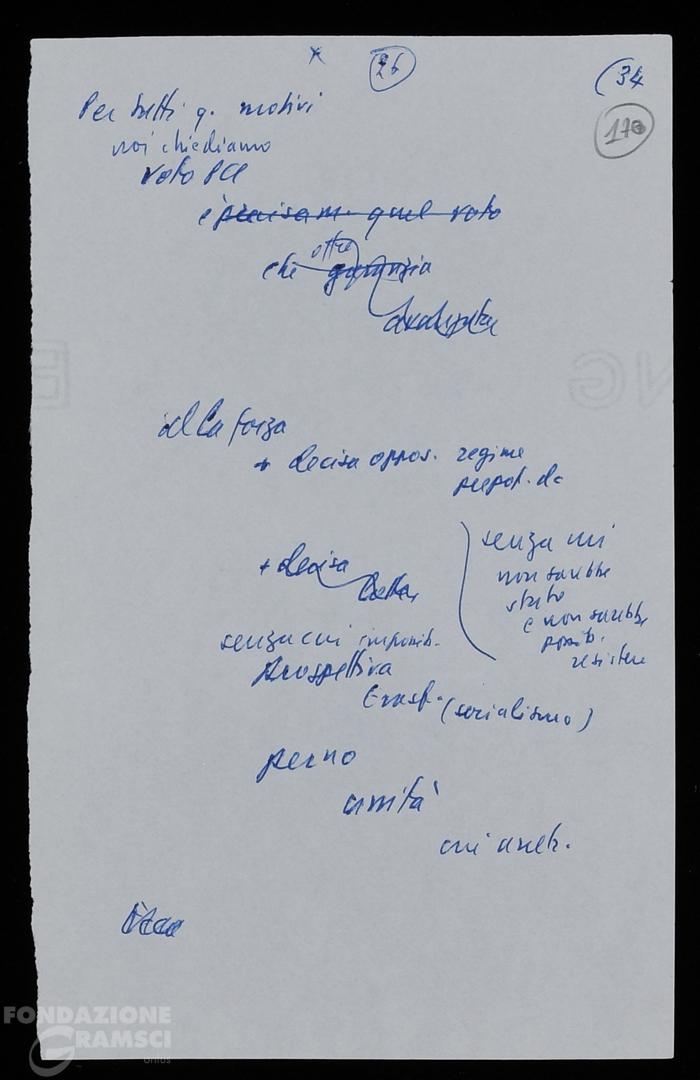 26
(34
170
Per tutti q. motivi
noi chiediamo
voto PCI
è precisam. quel voto
oltre
che garanzia
alla forza
+ decisa oppos. regime
prepot. dc
+ decisa
senza cui
non sarebbe
stato
e non sarebbe
possib.
resistere
senza cui impossib.
Prospettiva
Trasf. (socialismo)
perno
unità
cui anch.
FONDAZIONE
GRAMSCI
onlus